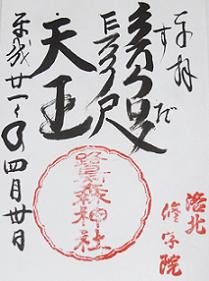 奉拝
すだ
鬚咫
天王
平成廿一年四月廿日
鷺森神社
洛北
修学院